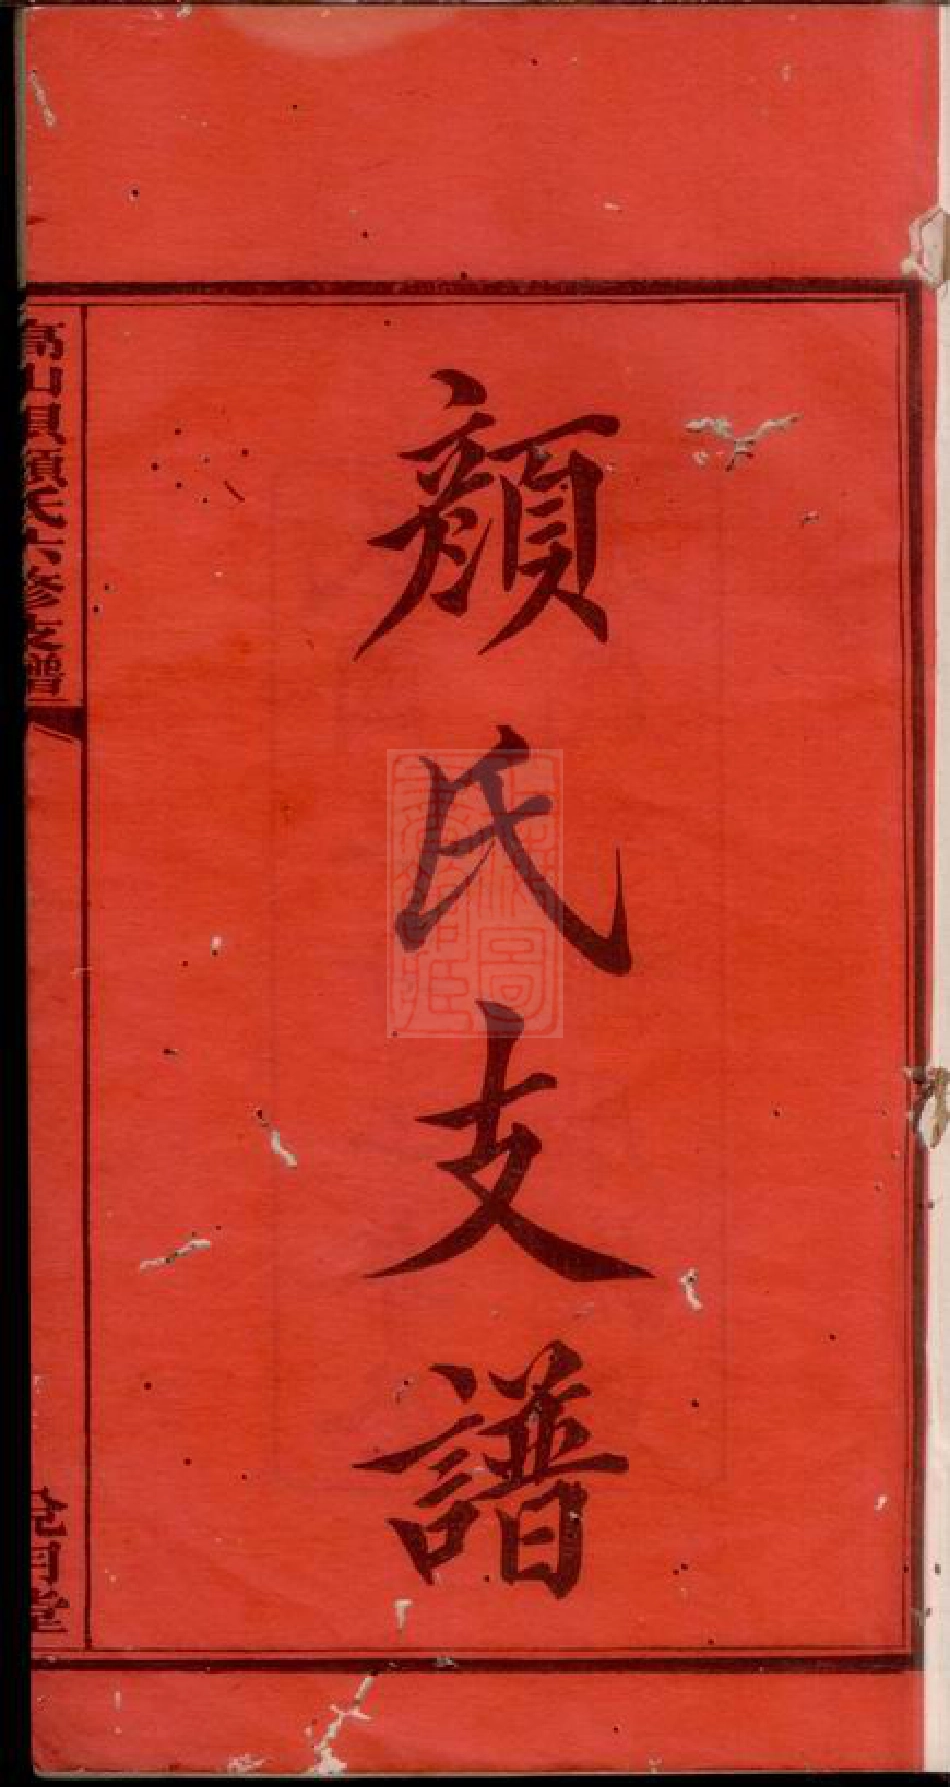 顏氏支譜
高山貝顏氏六修支譜